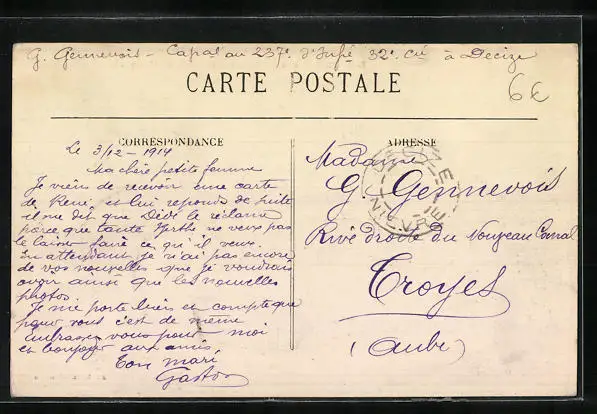 G. Gennevois - Capal au 237e d'Infie 32e Cie à Decize
CARTE POSTALE
6€
CORRESPONDANCE
ADRESSE
Le 3/12 - 1914
Ma chère petite femme
Je viens de recevoir une carte
de René, et lui reponds de suite
il me dit que Dédé le réclame
parce que tante ne veux pas
le laisser faire ce qu'il veux.
En attendant je n'ai pas encore
de vos nouvelles que je voudrais
avoir ainsi que les nouvelles
photos.
Je me porte bien et compte que
pour vous c'est de même
Embrassez vous pour moi
et bonjour aux amis
Ton mari
Gaston
Madame
G. Gennevois
Rive droite du Nouveau Canal
Troyes
(Aube)